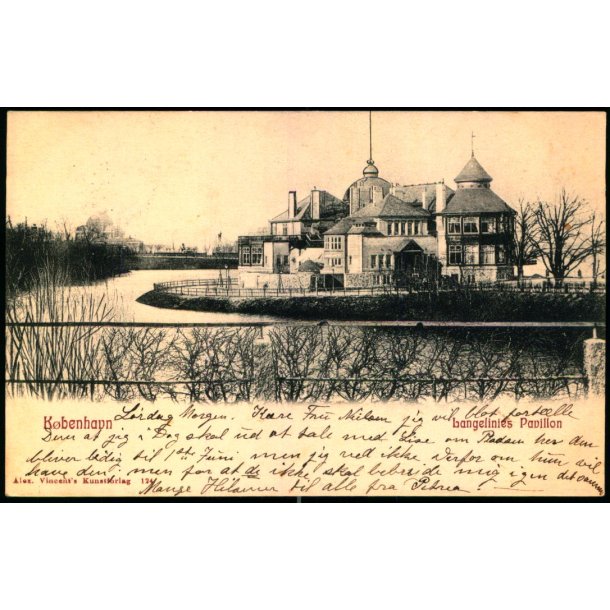 København
Langelinies Pavillon
Lørdag Morgen. Kære Fru Nielsen jeg vil blot fortælle
Dem at jeg i Dag skal ud at tale med om Pladsen her den
bliver ledig til 1ste Juni, men jeg ved ikke Derfor om hun vil
have den, men for at de ikke skal bebrejde mig igen det samme
Mange Hilsener til alle fra Petrea!
Alex. Vincent's Kunstforlag 124